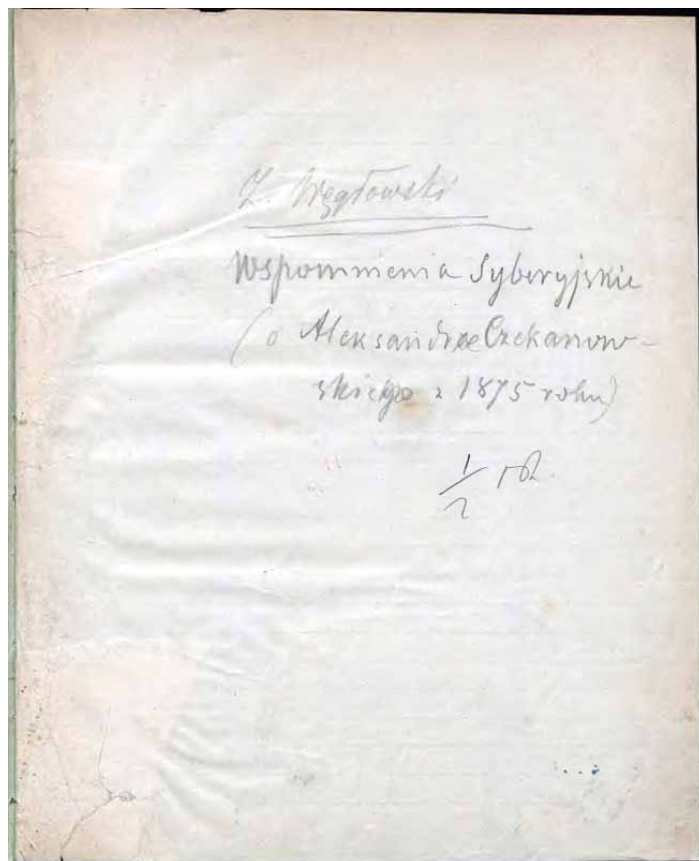 Z. Węgłowski
Wspomnienia Syberyjskie
(o Aleksandrze Czekanow-
skiego z 1875 roku)
1/2